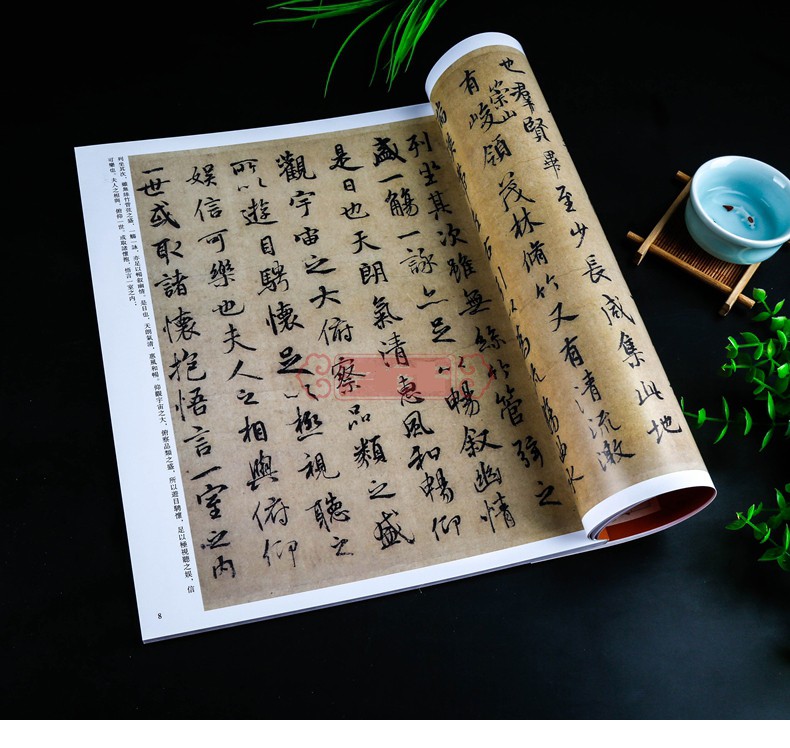 也羣賢畢至少長咸集此地
有崇山峻領茂林脩竹又有清流激
引以為流觴曲水
列坐其次雖無絲竹管弦之
盛一觴一詠亦足以暢敘幽情
是日也天朗氣清惠風和暢仰
觀宇宙之大俯察品類之盛
所以遊目騁懷足以極視聽之
娛信可樂也夫人之相與俯仰
一世或取諸懷抱悟言一室之內
列坐其次，雖無絲竹管弦之盛，一觴一詠，亦足以暢叙幽情。是日也，天朗氣清，惠風和暢。仰觀宇宙之大，俯察品類之盛，所以遊目騁懷，足以極視聽之娱，信
可樂也。夫人之相與，俯仰一世，或取諸懷抱，悟言一室之内；
8